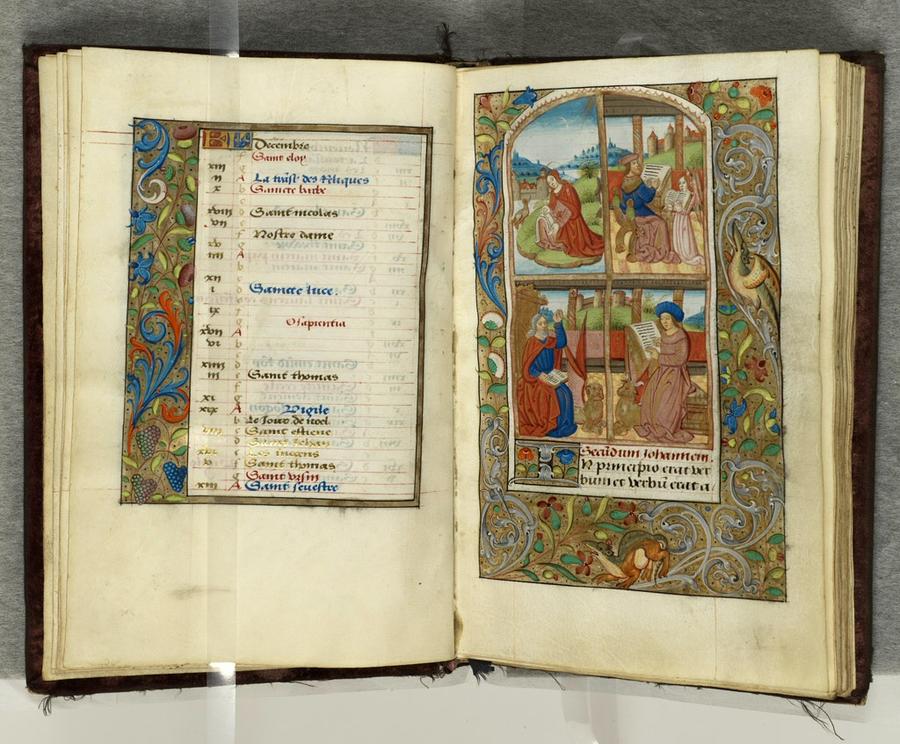 KL Decembre
f Saint eloy
xiii g
ii A La trāsl' des Reliques
x b Saincte barbe
c
xviii d Saint nicolas
vii e
f Nostre dame
xv g
iiii A
b
xii c
i d Saincte luce.
e
ix f
g O sapientia
xvii A
vi b
c
xiiii d Saint thomas
iii e
f
xi g
xix A Vigile
b Le Jour de noel
viii c Saint estiene
d Saint Jehan
xvi e Les innocens
v f Saint thomas
g Saint vrsin
xiii A Saint seuestre
Secūdum Johannem.
IN principio erat ver
bum et verbū erat a